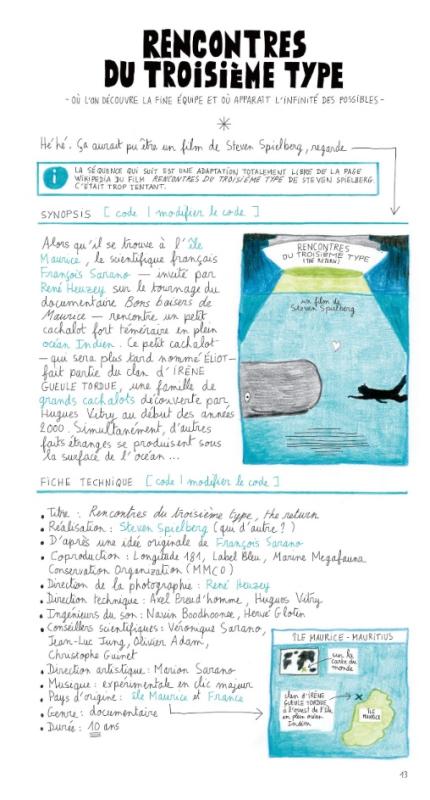 RENCONTRES
DU TROISIÈME TYPE
- OÙ L'ON DÉCOUVRE LA FINE ÉQUIPE ET OÙ APPARAIT L'INFINITÉ DES POSSIBLES -
Hé hé. Ça aurait pu être un film de Steven Spielberg, regarde
i
LA SÉQUENCE QUI SUIT EST UNE ADAPTATION TOTALEMENT LIBRE DE LA PAGE
WIKIPEDIA DU FILM RENCONTRES DU TROISIÈME TYPE DE STEVEN SPIELBERG.
C'ÉTAIT TROP TENTANT.
SYNOPSIS [ code | modifier le code ]
Alors qu'il se trouve à l'île
Maurice, le scientifique français
François Sarano — invité par
René Heuzey sur le tournage du
documentaire Bons baisers de
Maurice — rencontre un petit
cachalot fort téméraire en plein
océan Indien. Ce petit cachalot
— qui sera plus tard nommé ELIOT —
fait partie du clan d'IRÈNE
GUEULE TORDUE, une famille de
grands cachalots découverte par
Hugues Vitry au début des années
2000. Simultanément, d'autres
faits étranges se produisent sous
la surface de l'océan ...
RENCONTRES
DU TROISIÈME TYPE
(THE RETURN)
un film de
Steven Spielberg
FICHE TECHNIQUE [ code | modifier le code ]
• Titre : Rencontres du troisième type, the return
• Réalisation : Steven Spielberg (qui d'autre ?)
• D'après une idée originale de François Sarano
• Coproduction : Longitude 181, Label Bleu, Marine Megafauna
Conservation Organization (MMCO)
• Direction de la photographie : René Heuzey
• Direction technique : Axel Preud'homme, Hugues Vitry
• Ingénieurs du son : Navin Boodhoonee, Hervé Glotin
• Conseillers scientifiques : Véronique Sarano,
Jean-Luc Jung, Olivier Adam,
Christophe Guinet
• Direction artistique : Marion Sarano
• Musique : expérimentale en clic majeur
• Pays d'origine : île Maurice et France
• Genre : documentaire
• Durée : 10 ans
ÎLE MAURICE - MAURITIUS
sur la
carte du
monde
clan d'IRÈNE
GUEULE TORDUE,
à l'ouest de l'île
en plein océan
Indien
ÎLE
MAURICE
13